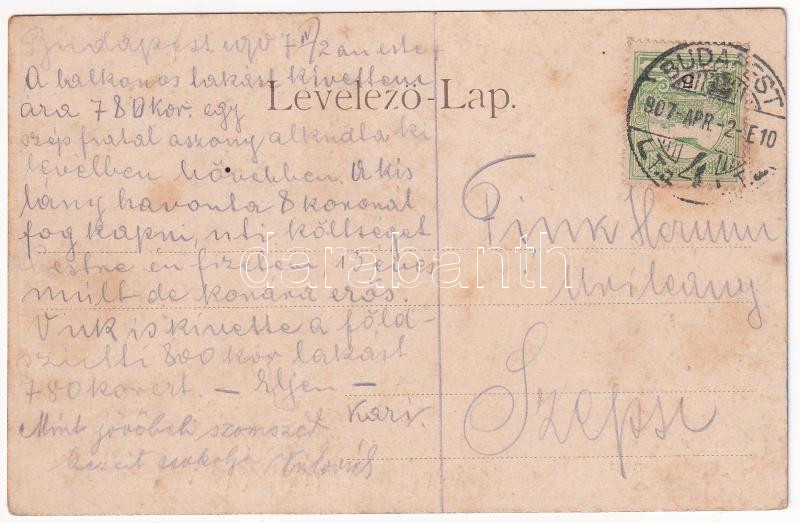 Budapest 1907 IV/2 án este
A balkonos lakást kivettem
ára 780 kor. egy
szép fiatal aszony alkudta ki
levélben bővebben. A kis
lány havonta 8 koronát
fog kapni, uti költséget
Pestre én fizetem 13 éves
múlt de korára erős.
Vuk is kivette a föld-
szinti 800 kor lakást
780 korért — Éljen —
Kari.
Mint jövőbeli szomszéd
kezeit csokolja
Levelező-Lap.
BUDAPEST
907 APR. -2. E 10
Fink Hermin
Urileány
Szepsi
darabanth